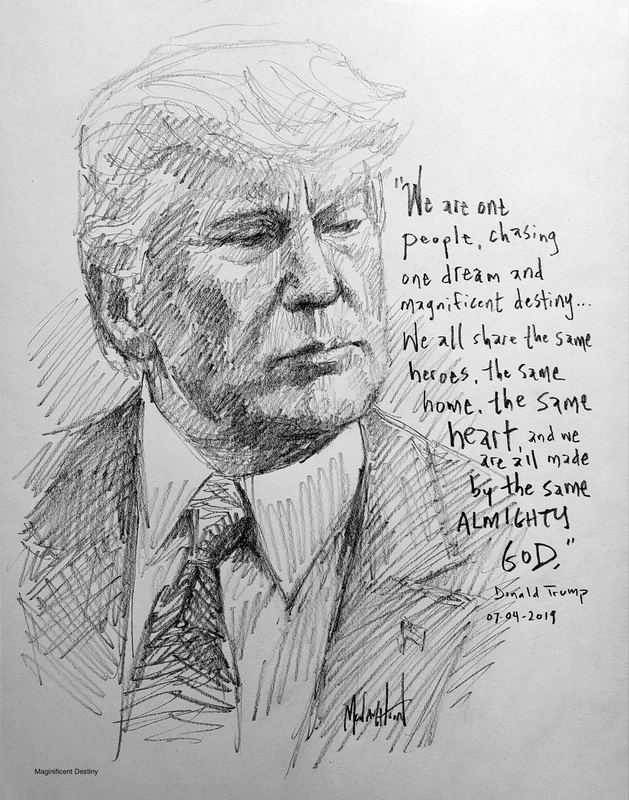 "We are one
people, chasing
one dream and
magnificent destiny...
We all share the same
heroes, the same
home, the same
heart, and we
are all made
by the same
ALMIGHTY
GOD."
Donald Trump
07-04-2019
Maginificent Destiny